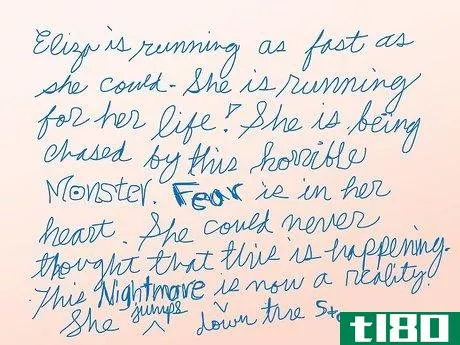 Eliza is running as fast as
she could. She is running
for her life! She is being
chased by this horrible
Monster. Fear is in her
heart. She could never
thought that this is happening.
This Nightmare is now a reality!
She jumps down the
t180